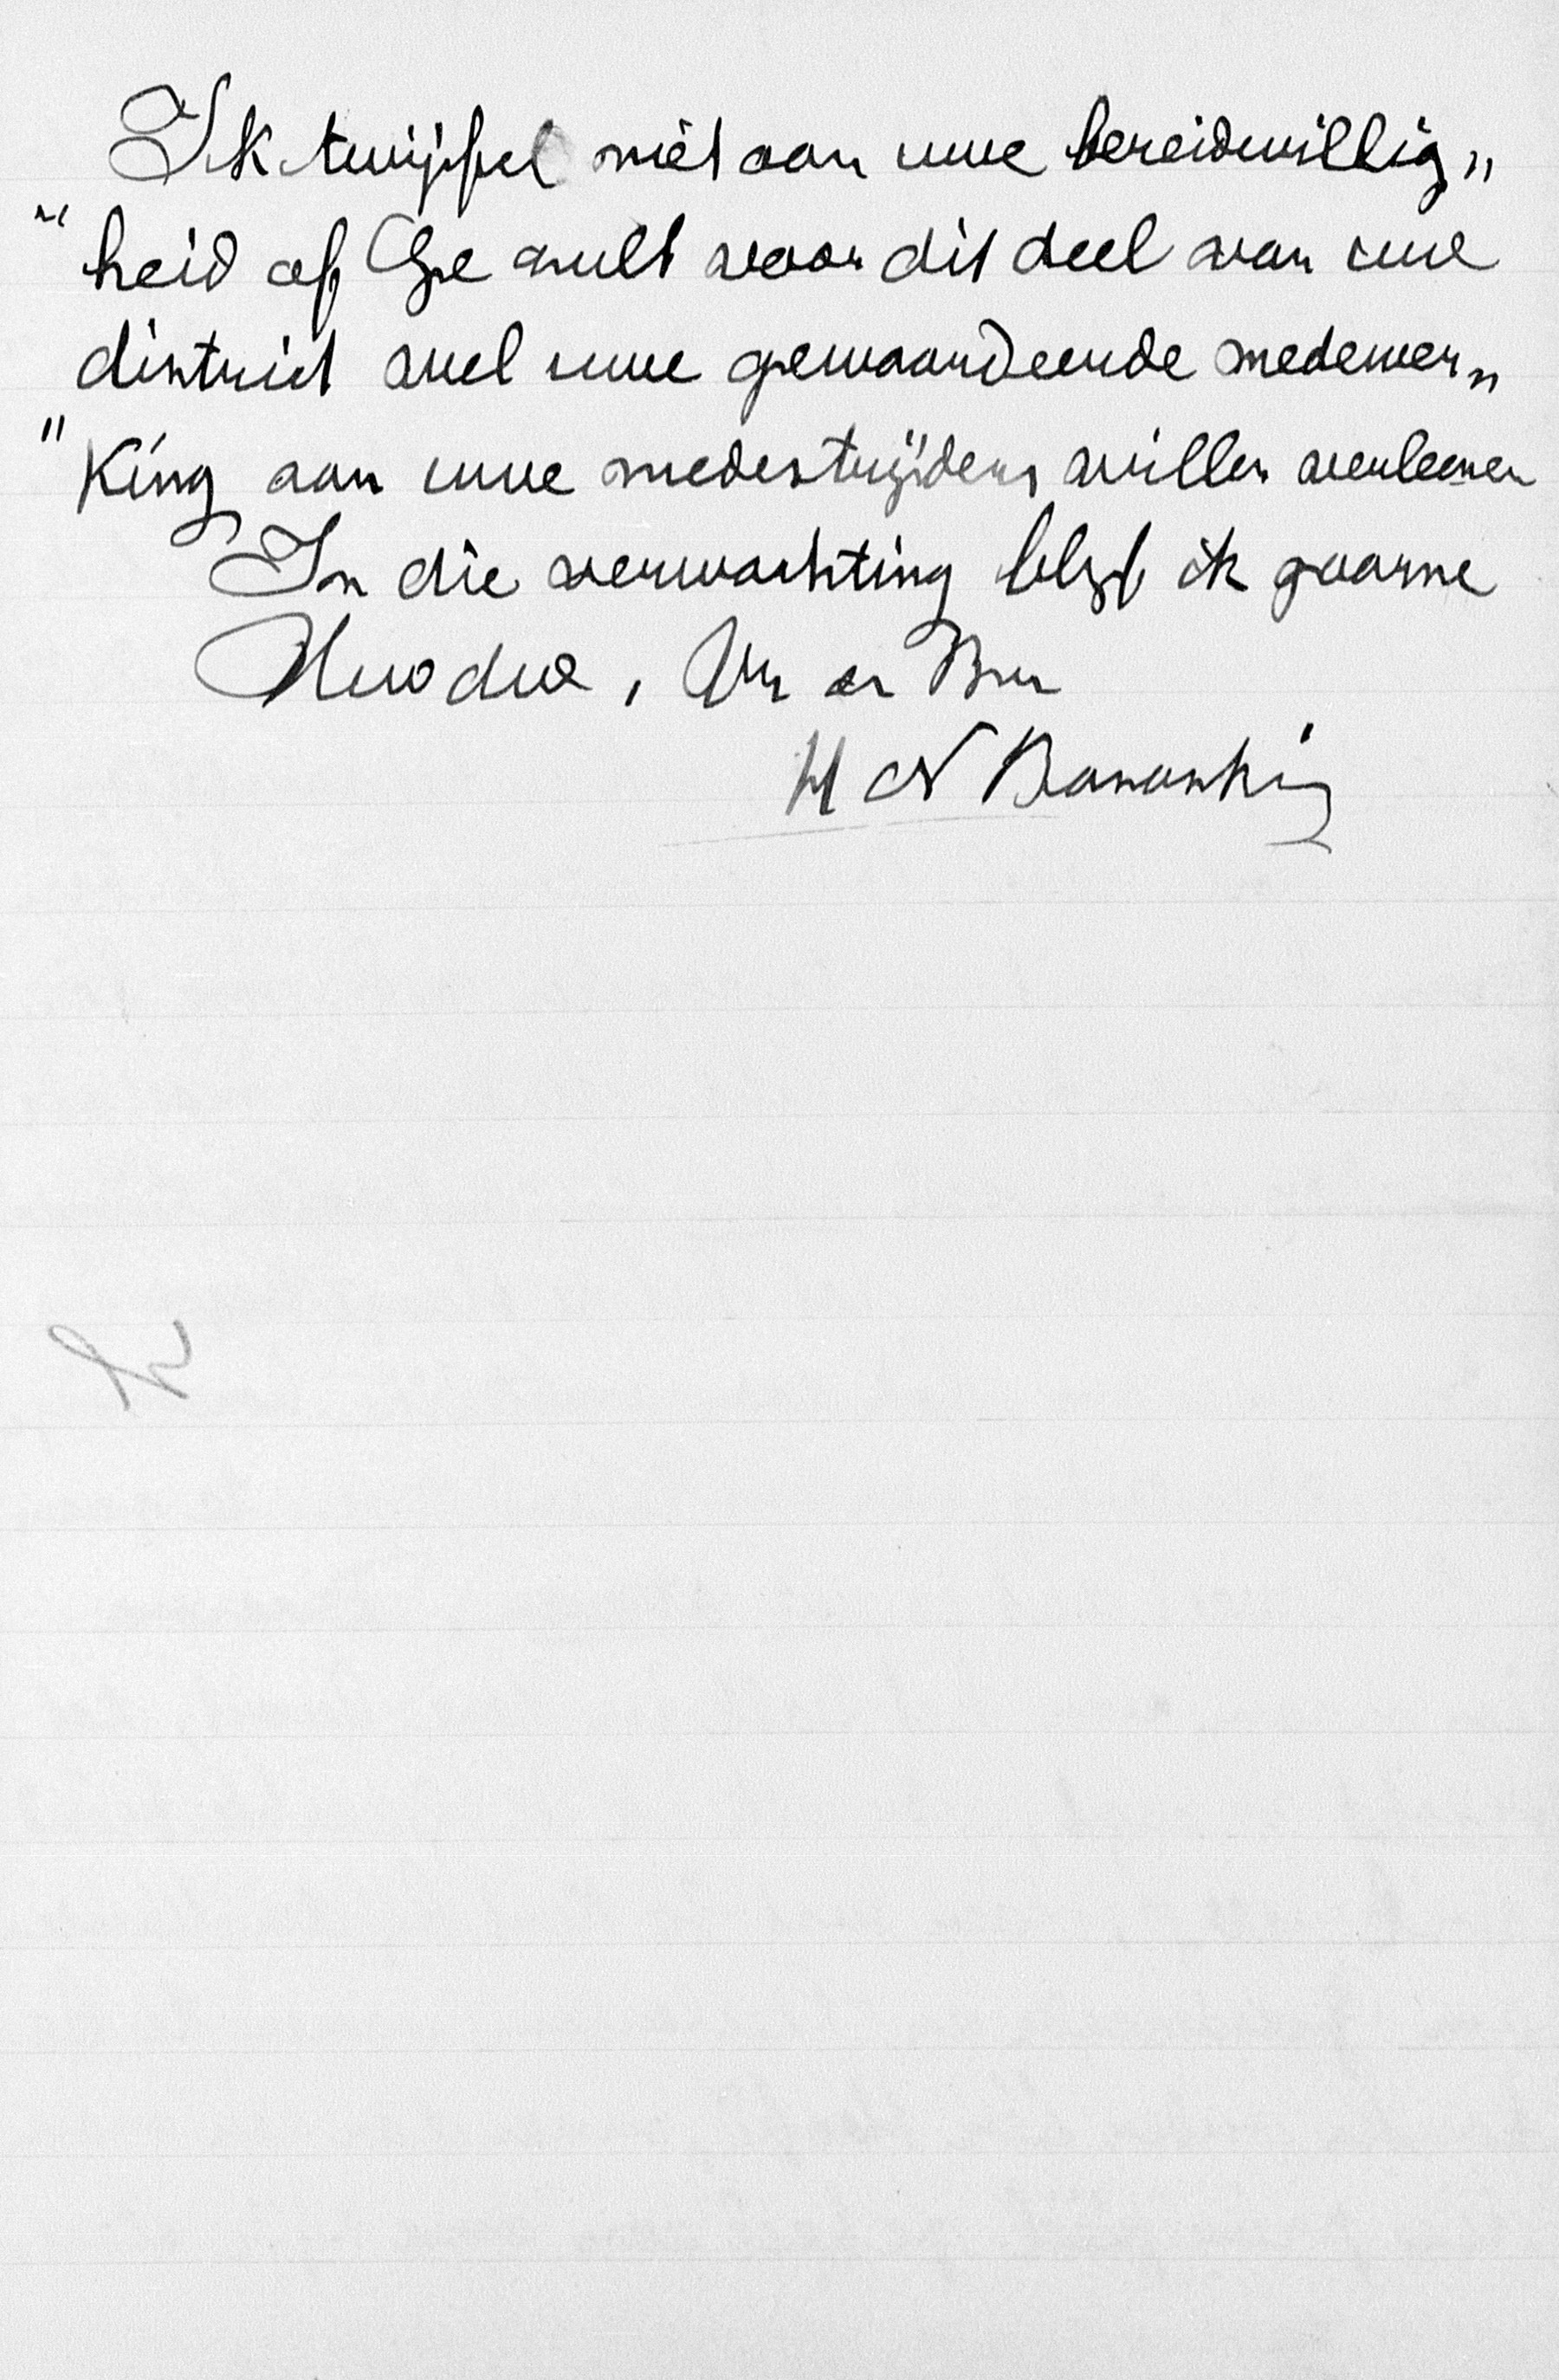 Ik twijfel niet aan uwe bereidwillig„
"heid of Ge zult voor dit deel van uwe
district wel uwe gewaardeerde medewer„
"King aan uwe medestrijders willen verleenen
In die verwachting blijf ik gaarne
Uwodw, Vr en Br
H N